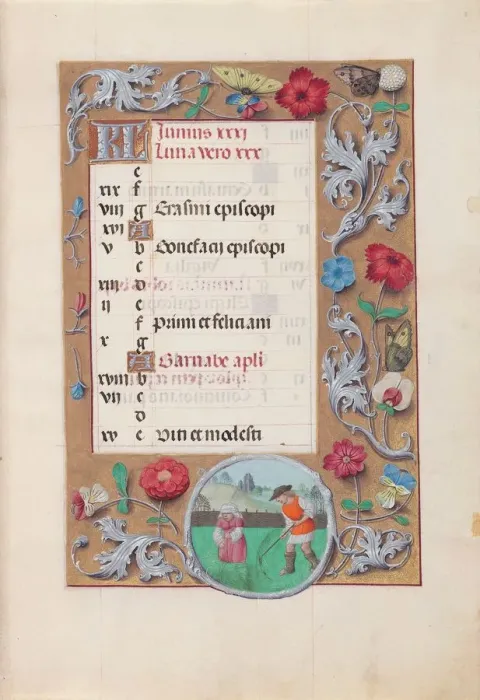 KL Junius xxxj
Luna vero xxx
e
xix f
viij g Erasmi episcopi
xvi A
v b Bonefacij episcopi
c
xiij d
ij e
f Primi et feliciani
x g
A Barnabe apli
xviij b
vij c
d
xv e Viti et modesti